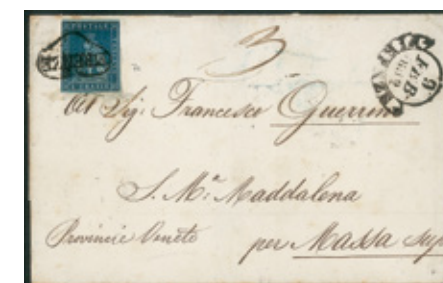 3
FIRENZE
9
FEB
Al Sig: Francesco Guerrini
S. Mª: Maddalena
Provincie Venete
per Massa sup